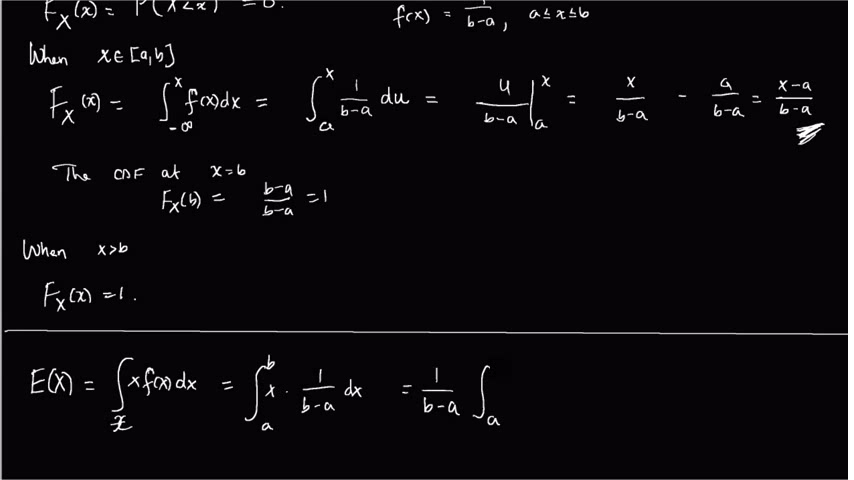 F_X(x) = P(X<x) = 0.
f(x) = 1/(b-a), a≤x≤b
When x∈[a,b]
F_X(x) = ∫_{-∞}^{x} f(x)dx = ∫_{a}^{x} 1/(b-a) du = u/(b-a) |_{a}^{x} = x/(b-a) - a/(b-a) = (x-a)/(b-a)
The CDF at x=b
F_X(b) = (b-a)/(b-a) = 1
When x>b
F_X(x) = 1.
E(X) = ∫_{x} x f(x) dx = ∫_{a}^{b} x · 1/(b-a) dx = 1/(b-a) ∫_{a}